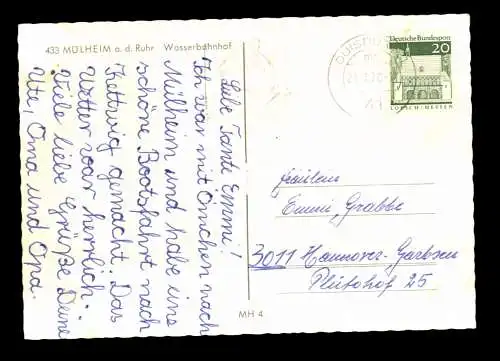 433 MÜLHEIM a. d. Ruhr Wasserbahnhof
Liebe Tante Emmi!
Ich war mit Omchen nach
Mülheim und habe eine
schöne Bootsfahrt nach
Kettwig gemacht. Das
Wetter war herrlich.
Viele liebe Grüße Deine
Ute, Oma und Opa.
MH 4
DUISBU
41
Deutsche Bundespost
20
LORSCH/HESSEN
Fräulein
Emmi Grabbe
3011 Hannover-Garbsen
Plutohof 25